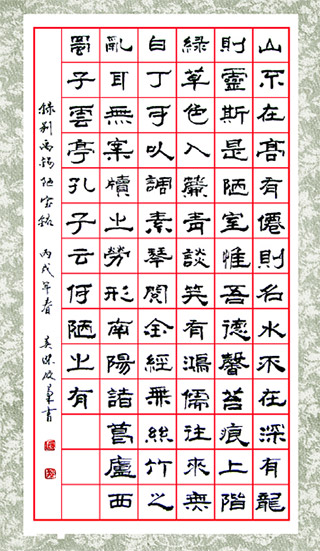 山不在高有僊則名水不在深有龍
則靈斯是陋室惟吾德馨苔痕上階
綠草色入簾青談笑有鴻儒往來無
白丁可以調素琴閱金經無絲竹之
亂耳無案牘之勞形南陽諸葛廬西
蜀子雲亭孔子云何陋之有
錄劉禹錫陋室銘 丙戌年春 書